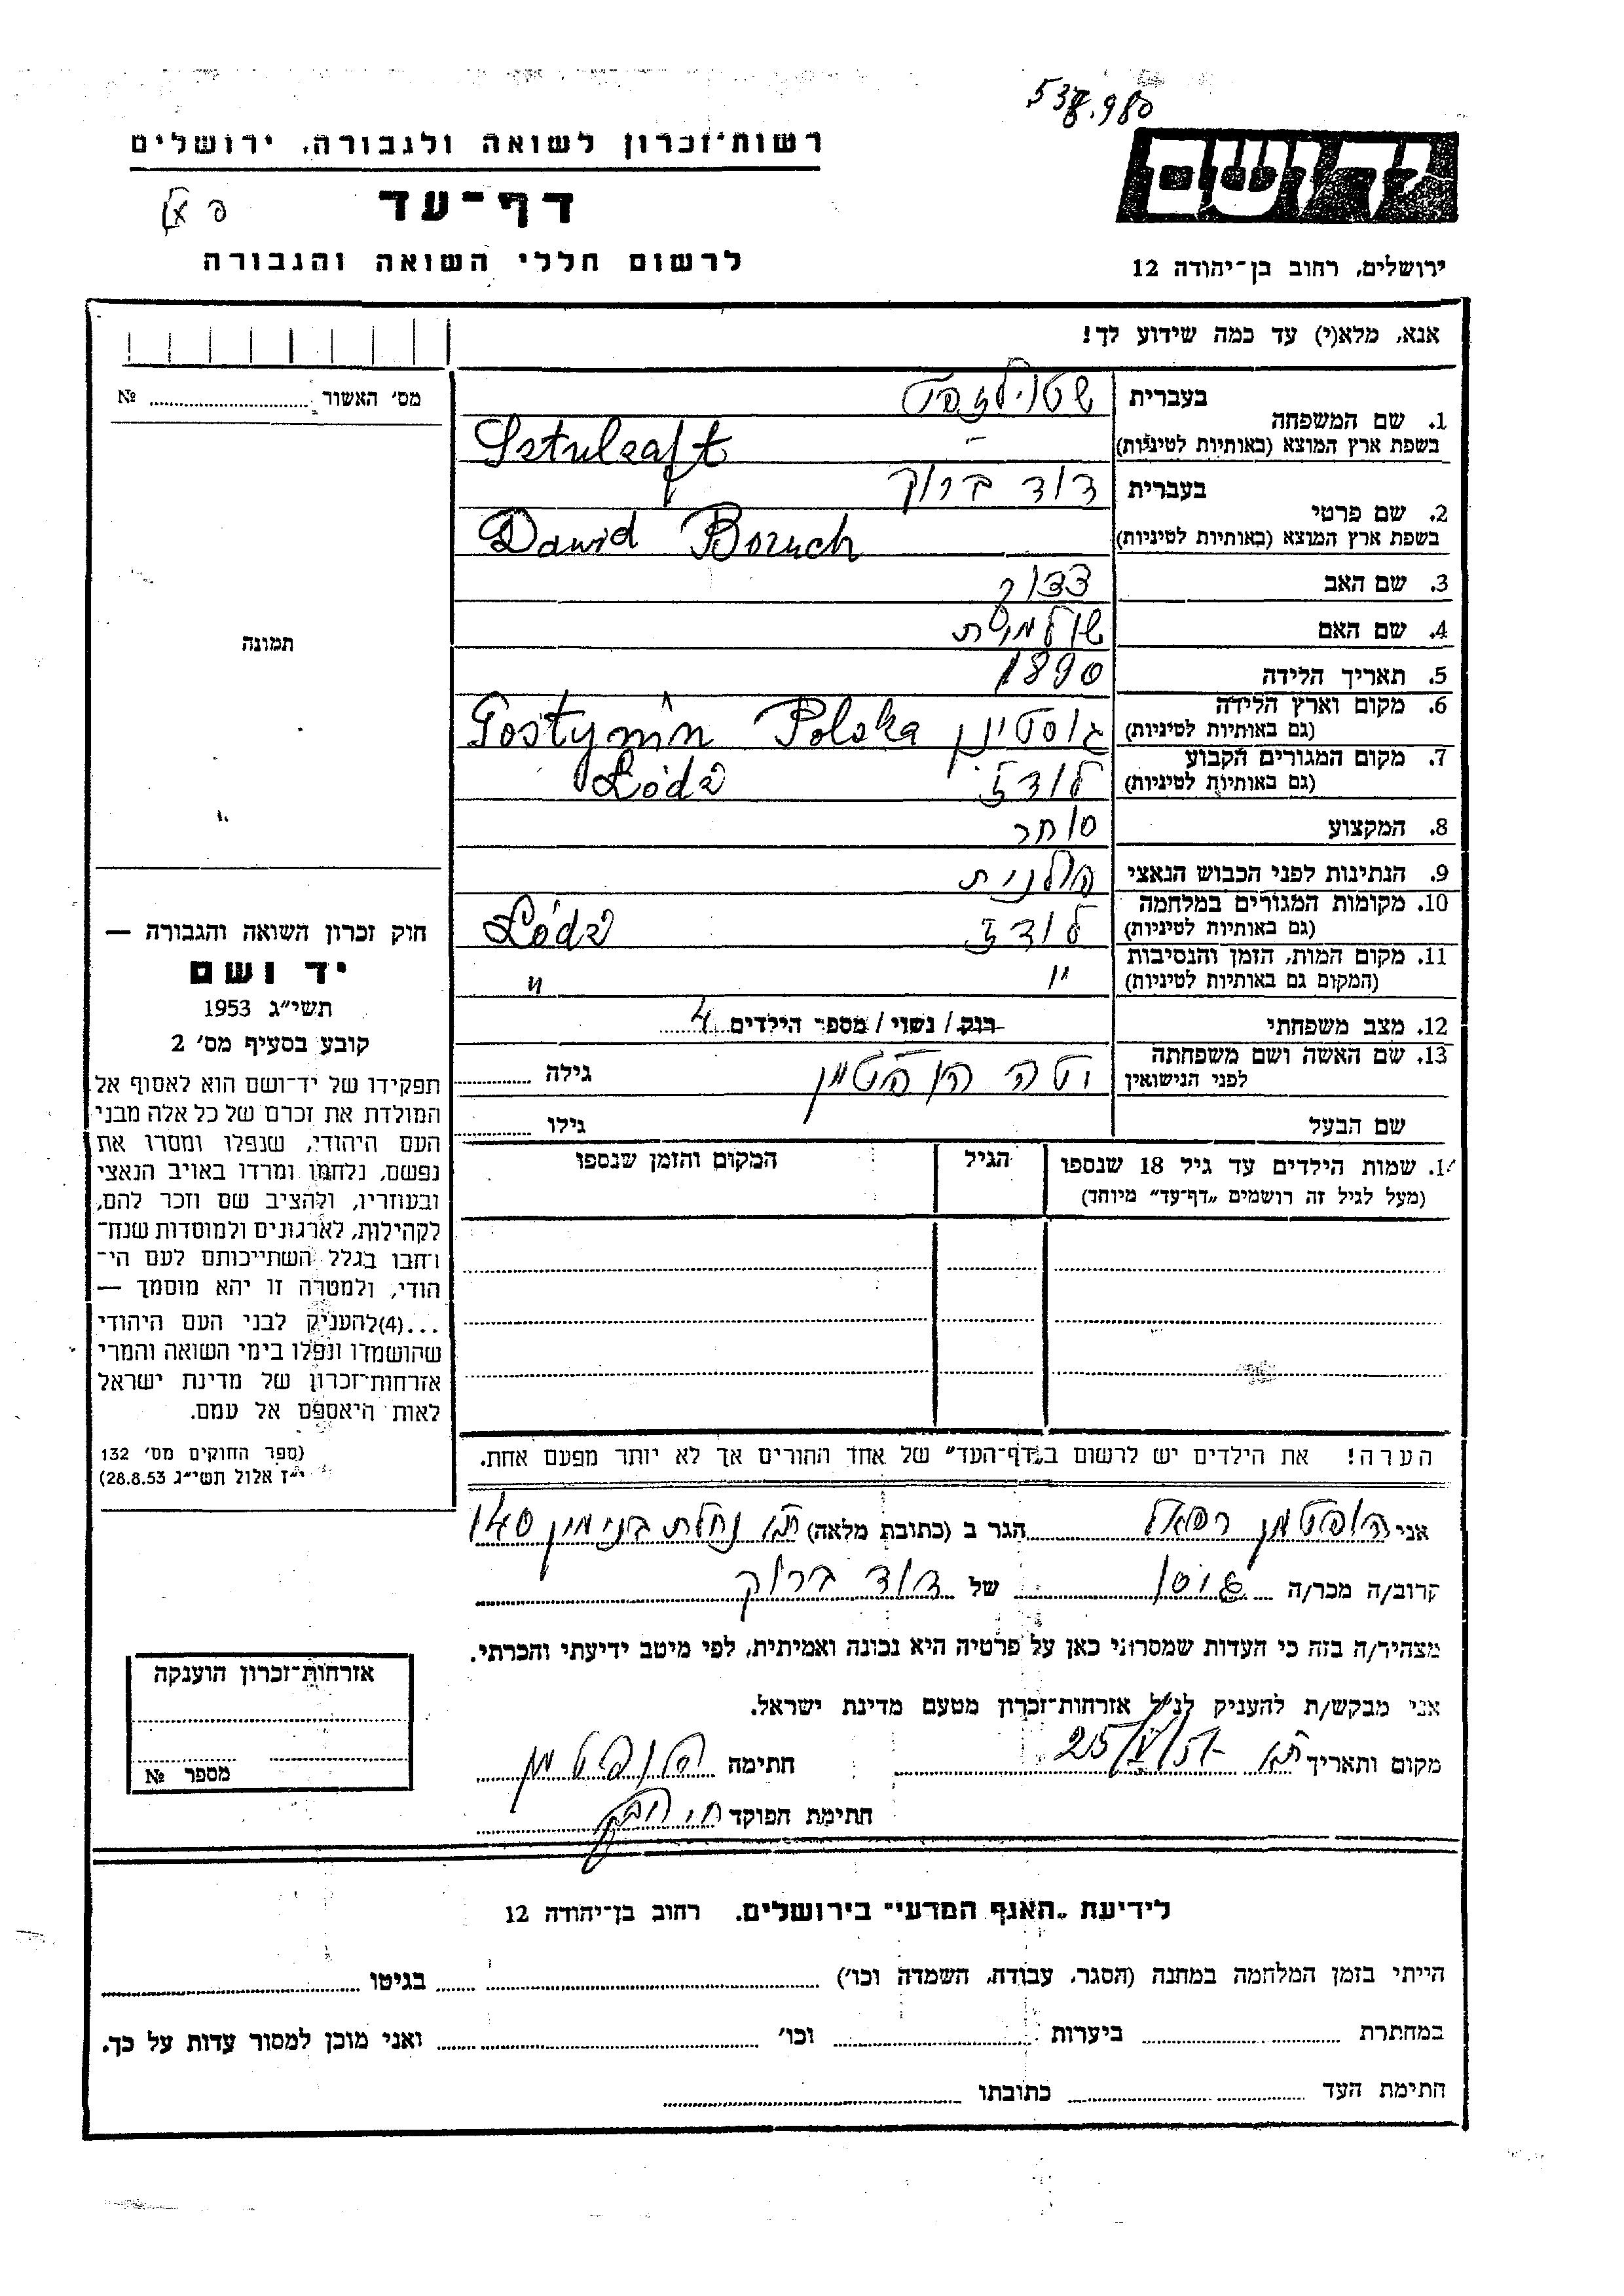 538.980
יד ושם
ירושלים, רחוב בן־יהודה 12
רשות־זכרון לשואה ולגבורה, ירושלים
דף־עד
לרשום חללי השואה והגבורה
אנא, מלא(י) עד כמה שידוע לך!
מס׳ האשור № 
1. שם המשפחה בעברית
בשפת ארץ המוצא (באותיות לטיניות) Sztulzaft
2. שם פרטי בעברית דוד ברוך
בשפת ארץ המוצא (באותיות לטיניות) Dawid Boruch
3. שם האב
4. שם האם שולמית
5. תאריך הלידה 1890
6. מקום וארץ הלידה (גם באותיות לטיניות) גוסטינין Gostynin Polska
7. מקום המגורים הקבוע (גם באותיות לטיניות) לודז Łódź
8. המקצוע סוחר
9. הנתינות לפני הכבוש הנאצי פולנית
10. מקומות המגורים במלחמה (גם באותיות לטיניות) לודז Łódź
11. מקום המות, הזמן והנסיבות (המקום גם באותיות לטיניות) " "
12. מצב משפחתי רוק / נשוי / מספר הילדים 4
13. שם האשה ושם משפחתה לפני הנישואין יטה הופטמן גילה
שם הבעל גילו
14. שמות הילדים עד גיל 18 שנספו
(מעל לגיל זה רושמים „דף־עד״ מיוחד)
הגיל
המקום והזמן שנספו
הערה! את הילדים יש לרשום ב„דף־העד״ של אחד ההורים אך לא יותר מפעם אחת.
תמונה
חוק זכרון השואה והגבורה —
יד ושם
תשי״ג 1953
קובע בסעיף מס׳ 2
תפקידו של יד־ושם הוא לאסוף אל
המולדת את זכרם של כל אלה מבני
העם היהודי, שנפלו ומסרו את
נפשם, נלחמו ומרדו באויב הנאצי
ובעוזריו, ולהציב שם וזכר להם,
לקהילות, לארגונים ולמוסדות שנח־
רבו בגלל השתייכותם לעם הי־
הודי, ולמטרה זו יהא מוסמך —
...(4)להעניק לבני העם היהודי
שהושמדו ונפלו בימי השואה והמרי
אזרחות־זכרון של מדינת ישראל
לאות היאספם אל עמם.
(ספר החוקים מס׳ 132
י״ז אלול תשי״ג 28.8.53)
אני הופטמן רפאל הגר ב (כתובת מלאה) ת״א נחלת בנימין 140
קרוב/ה מכר/ה גיסו של דוד ברוך
מצהיר/ה בזה כי העדות שמסרתי כאן על פרטיה היא נכונה ואמיתית, לפי מיטב ידיעתי והכרתי.
אני מבקש/ת להעניק לנ״ל אזרחות־זכרון מטעם מדינת ישראל.
מקום ותאריך ת״א חתימה הופטמן
חתימת הפוקד
אזרחות־זכרון הוענקה
מספר №
לידיעת „האגף המדעי״ בירושלים, רחוב בן־יהודה 12
הייתי בזמן המלחמה במחנה (הסגר, עבודה, השמדה וכו׳) בגיטו
במחתרת ביערות וכו׳ ואני מוכן למסור עדות על כך.
חתימת העד כתובתו